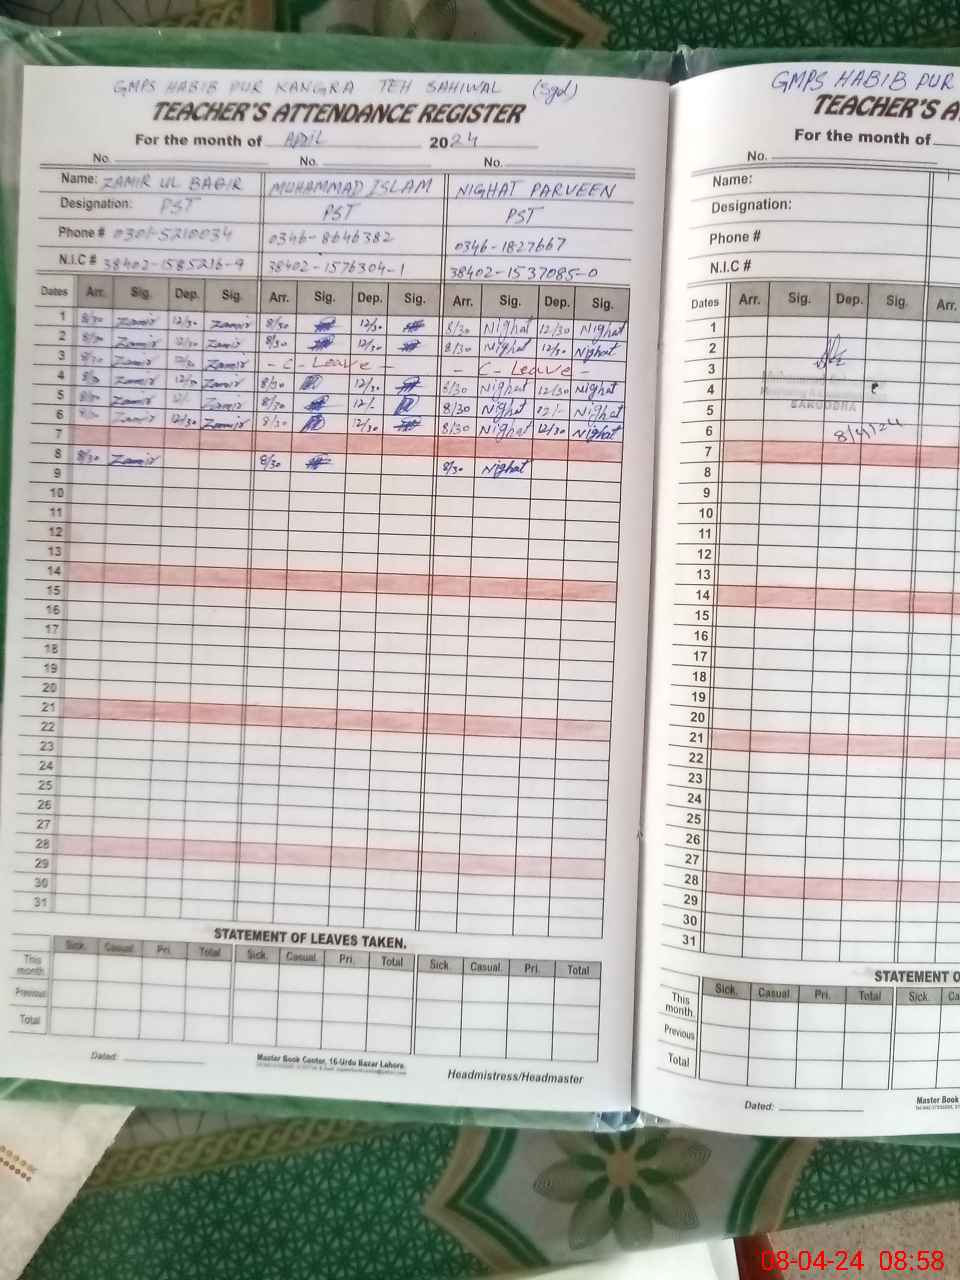 GMPS HABIB PUR KANGRA TEH SAHIWAL (Sgd)
TEACHER'S ATTENDANCE REGISTER
For the month of APRIL 2024
No. No. No.
Name: ZAMIR UL BAQIR MUHAMMAD ISLAM NIGHAT PARVEEN
Designation: PST PST PST
Phone # 0301-5210034 0346-8646382 0346-1827667
N.I.C # 38402-1585216-9 38402-1576304-1 38402-1537085-0
Dates Arr. Sig. Dep. Sig. Arr. Sig. Dep. Sig. Arr. Sig. Dep. Sig.
1 8/30 Zamir 12/30 Zamir 8/30 12/30 8/30 Nighat 12/30 Nighat
2 8/30 Zamir 12/30 Zamir 8/30 12/30 8/30 Nighat 12/30 Nighat
3 8/30 Zamir 12/30 Zamir - C - Leave - - C - Leave -
4 8/30 Zamir 12/30 Zamir 8/30 12/30 8/30 Nighat 12/30 Nighat
5 8/30 Zamir 12/- Zamir 8/30 12/- 8/30 Nighat 12/- Nighat
6 8/30 Zamir 12/30 Zamir 8/30 12/30 8/30 Nighat 12/30 Nighat
7
8 8/30 Zamir 8/30 8/30 Nighat
9
10
11
12
13
14
15
16
17
18
19
20
21
22
23
24
25
26
27
28
29
30
31
STATEMENT OF LEAVES TAKEN.
Sick. Casual. Pri. Total Sick. Casual. Pri. Total Sick. Casual. Pri. Total
This month.
Previous
Total
Dated:
Master Book Center, 16-Urdu Bazar Lahore.
Headmistress/Headmaster
GMPS HABIB PUR
TEACHER'S A
For the month of
No.
Name:
Designation:
Phone #
N.I.C #
Dates Arr. Sig. Dep. Sig. Arr.
1
2
3
4
5
SARGODHA
6 8/4/24
7
8
9
10
11
12
13
14
15
16
17
18
19
20
21
22
23
24
25
26
27
28
29
30
31
STATEMENT O
Sick. Casual Pri. Total Sick. Ca
This month.
Previous
Total
Dated:
Master Book
08-04-24 08:58